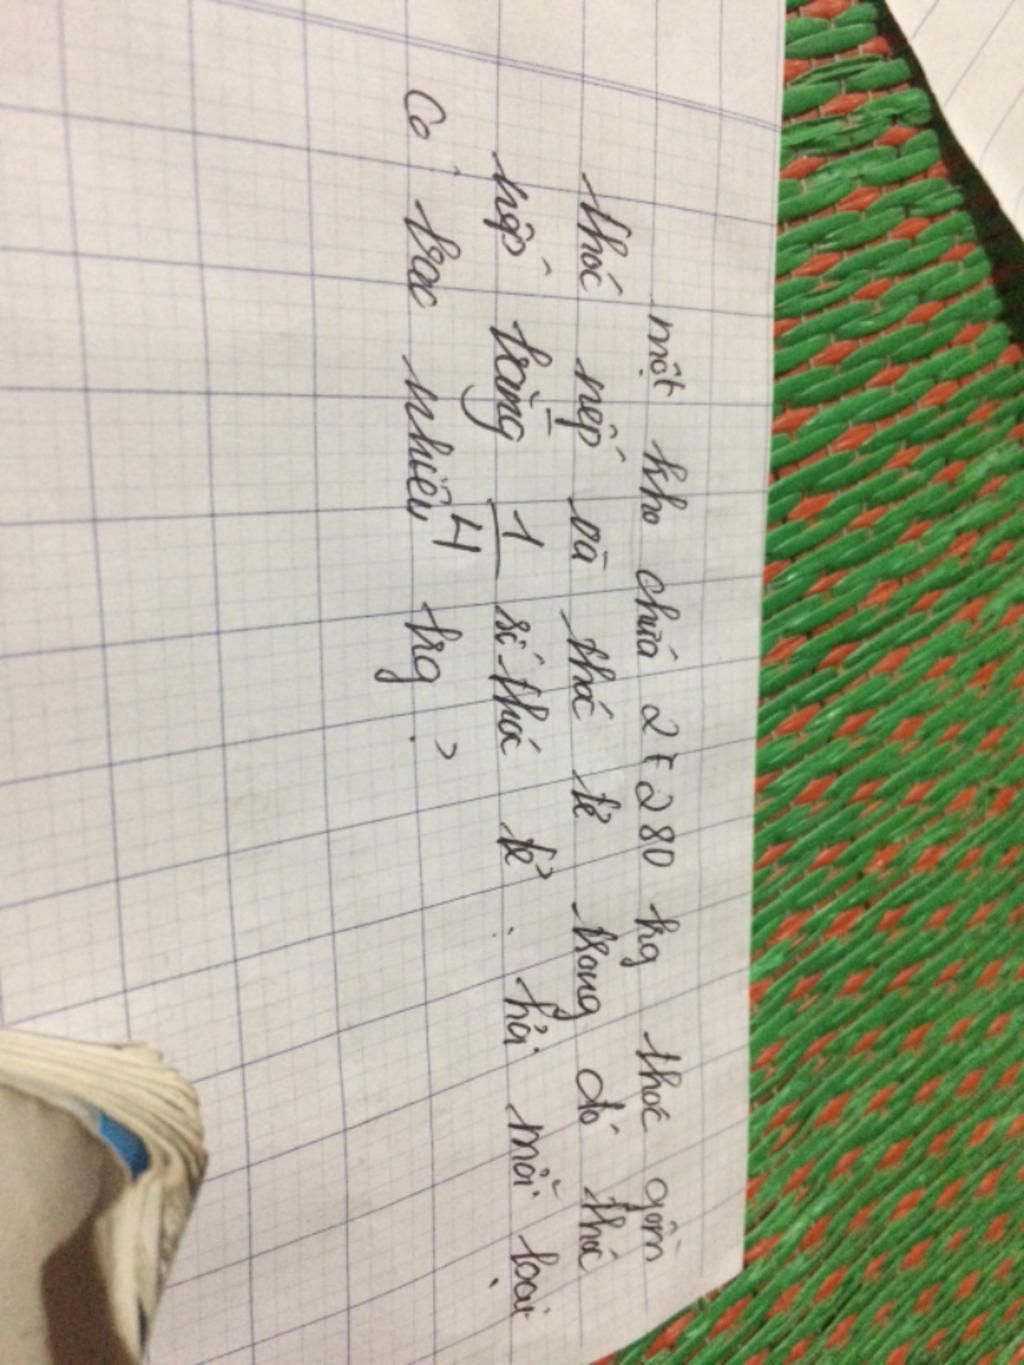 một kho chứa 27280 kg thóc gồm
thóc nếp và thóc tẻ trong đó thóc
nếp bằng 1/4 số thóc tẻ. hỏi mỗi loại
có bao nhiêu kg?